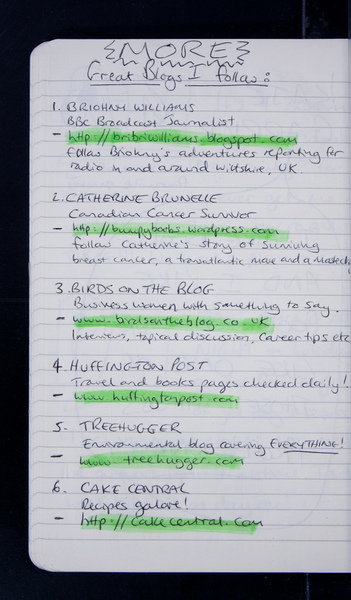 {MORE}
Great Blogs I follow:
1. BRIOHNY WILLIAMS
BBC Broadcast Journalist
- http://bribriwilliams.blogspot.com
follow Briohny's adventures reporting for
radio in and around Wiltshire, UK.
2. CATHERINE BRUNELLE
Canadian Cancer Survivor
- http://bumpyboobs.wordpress.com
follow Catherine's story of surviving
breast cancer, a transatlantic move and a
3. BIRDS ON THE BLOG
Business women with something to say.
- www.birdsontheblog.co.uk
Interviews, topical discussion, Career tips etc
4. HUFFINGTON POST
Travel and books pages checked daily!
- www.huffingtonpost.com
5. TREEHUGGER
Environmental blog covering EVERYTHING!
- www.treehugger.com
6. CAKE CENTRAL
Recipes galore!
- http://cakecentral.com